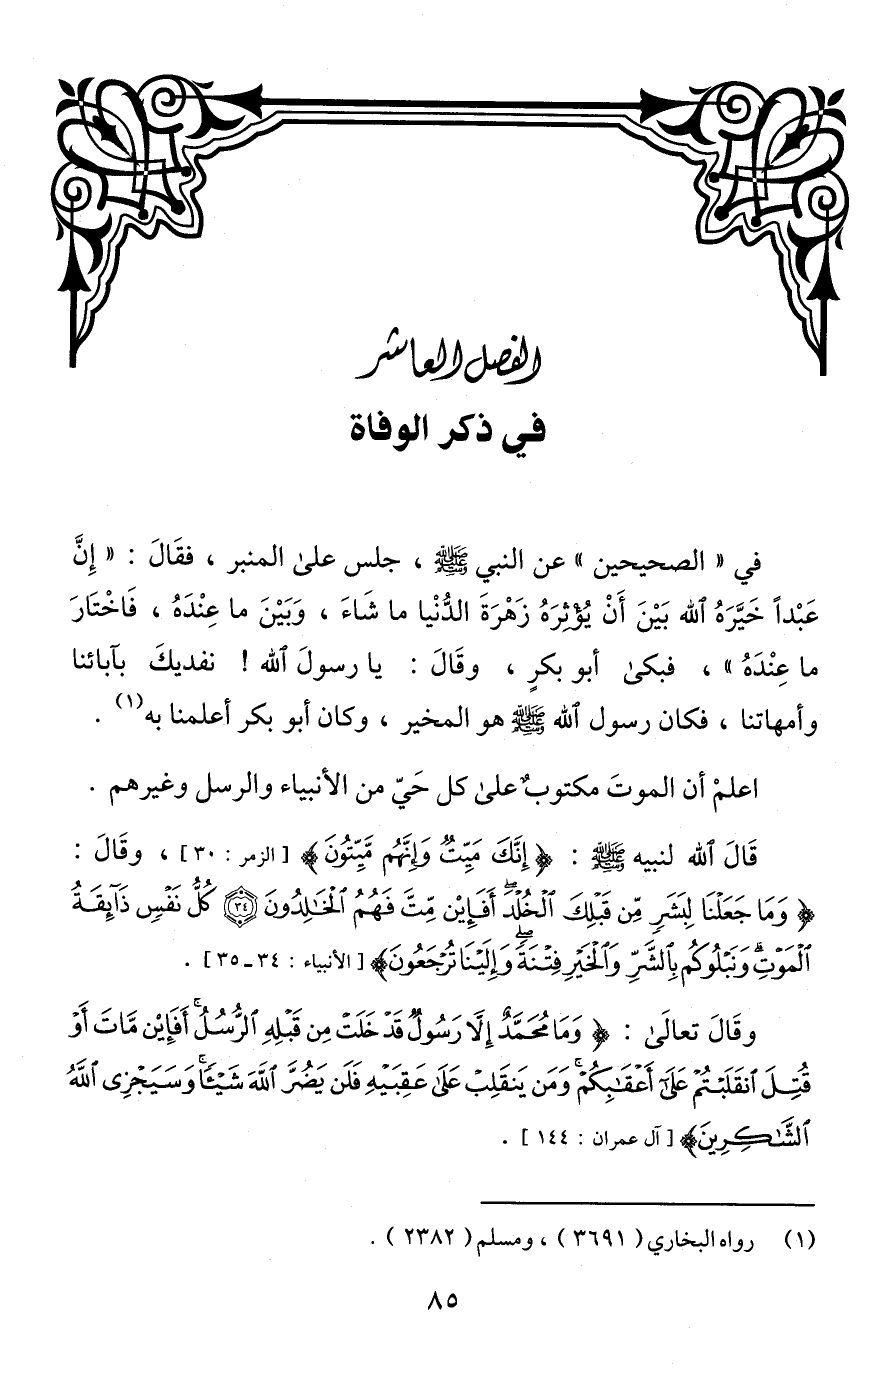 الفصل العاشر
في ذكر الوفاة
في « الصحيحين » عن النبي ﷺ ، جلس علىٰ المنبر ، فقَالَ : « إِنَّ
عَبْداً خَيَّرَهُ ٱلله بَيْنَ أَنْ يُؤْثِرَهُ زَهْرَةَ الدُّنْيا ما شَاءَ ، وَبَيْنَ ما عِنْدَهُ ، فَاخْتَارَ
ما عِنْدَهُ » ، فبكىٰ أبو بكرٍ ، وقَالَ : يا رسولَ ٱلله ! نفديكَ بآبائنا
وأمهاتنا ، فكان رسول ٱلله ﷺ هو المخير ، وكان أبو بكر أعلمنا به(١) .
اعلمْ أن الموتَ مكتوبٌ علىٰ كل حَيّ من الأنبياء والرسل وغيرهم .
قَالَ ٱلله لنبيه ﷺ : ﴿ إِنَّكَ مَيِّتٌ وَإِنَّهُم مَّيِّتُونَ﴾ [ الزمر : ٣٠ ] ، وقَالَ :
﴿ وَمَا جَعَلْنَا لِبَشَرٍ مِّن قَبْلِكَ ٱلْخُلْدَ ۖ أَفَإِيْن مِّتَّ فَهُمُ ٱلْخَٰلِدُونَ ﴿٣٤﴾ كُلُّ نَفْسٍ ذَآئِقَةُ
ٱلْمَوْتِ ۗ وَنَبْلُوكُم بِٱلشَّرِّ وَٱلْخَيْرِ فِتْنَةً ۖ وَإِلَيْنَا تُرْجَعُونَ﴾ [ الأنبياء : ٣٤ـ٣٥ ] .
وقَالَ تعالَىٰ : ﴿ وَمَا مُحَمَّدٌ إِلَّا رَسُولٌ قَدْ خَلَتْ مِن قَبْلِهِ ٱلرُّسُلُ ۚ أَفَإِيْن مَّاتَ أَوْ
قُتِلَ ٱنقَلَبْتُمْ عَلَىٰٓ أَعْقَٰبِكُمْ ۚ وَمَن يَنقَلِبْ عَلَىٰ عَقِبَيْهِ فَلَن يَضُرَّ ٱللَّهَ شَيْـًٔا ۗ وَسَيَجْزِى ٱللَّهُ
ٱلشَّٰكِرِينَ﴾ [ آل عمران : ١٤٤ ] .
(١) رواه البخاري ( ٣٦٩١ ) ، ومسلم ( ٢٣٨٢ ) .
٨٥